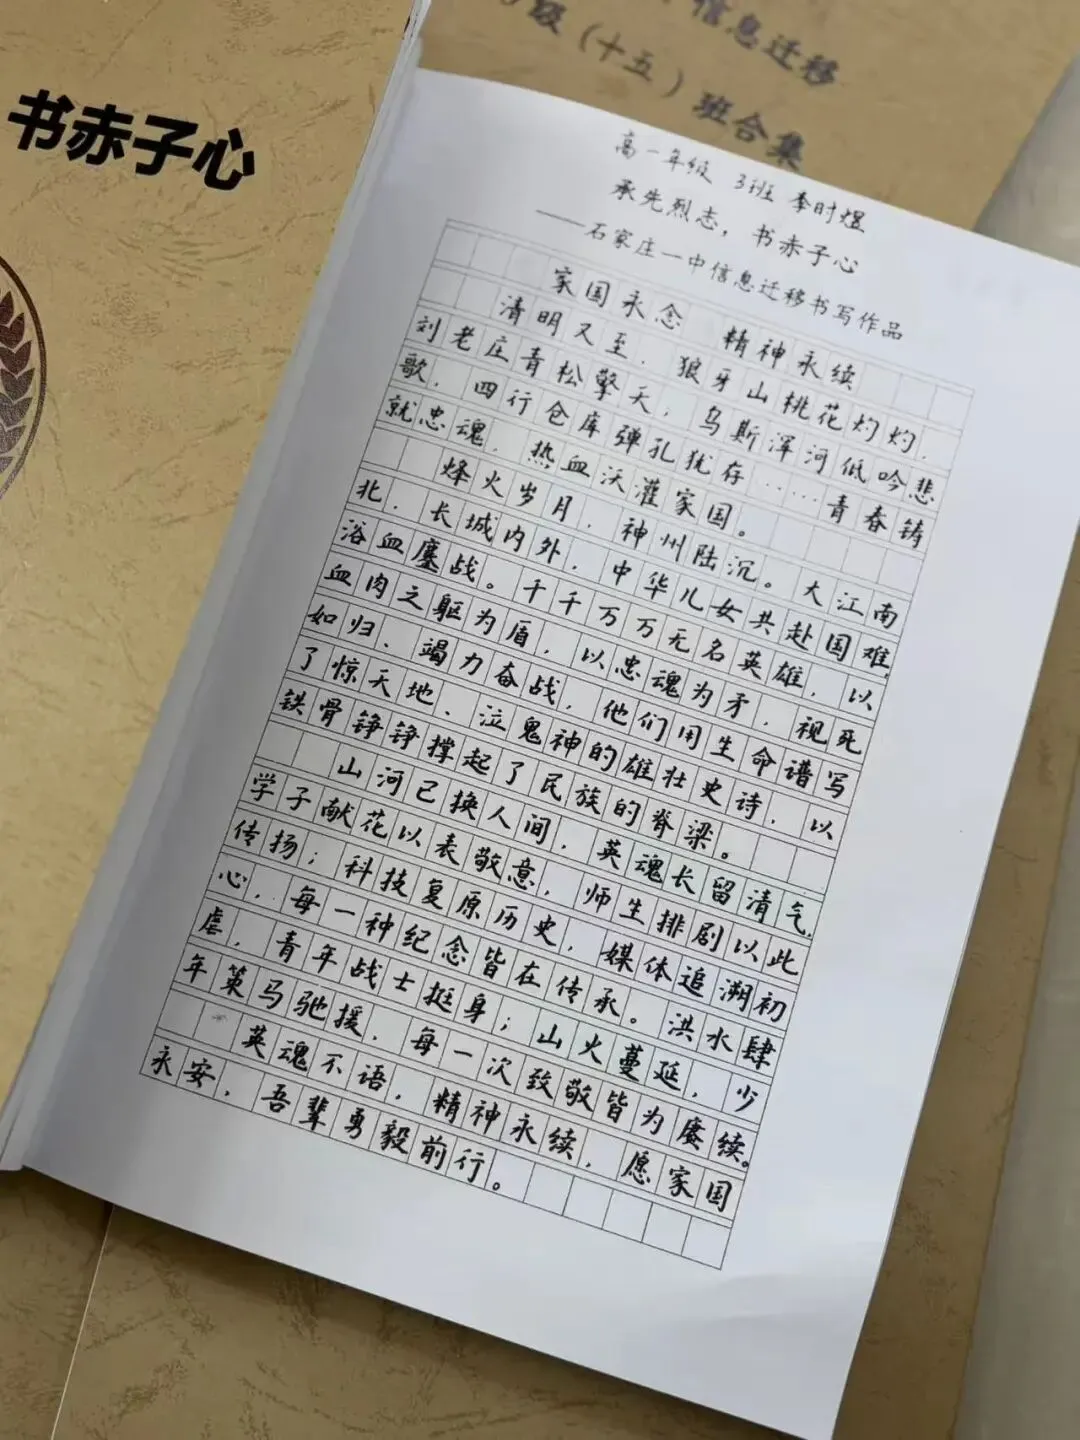 书赤子心
信息迁移
级（十五）班合集
高一年级 3班 李时煜
承先烈志，书赤子心
——石家庄一中信息迁移书写作品
家国永念 精神永续
清明又至，狼牙山桃花灼灼，
刘老庄青松擎天，乌斯浑河低吟悲
歌，四行仓库弹孔犹存……青春铸
就忠魂，热血沃灌家国。
烽火岁月，神州陆沉。大江南
北，长城内外，中华儿女共赴国难，
浴血鏖战。千千万万无名英雄，以
血肉之躯为盾，以忠魂为矛，视死
如归、竭力奋战，他们用生命谱写
了惊天地、泣鬼神的雄壮史诗，以
铁骨铮铮撑起了民族的脊梁。
山河已换人间，英魂长留清气，
学子献花以表敬意，师生排剧以此
传扬；科技复原历史，媒体追溯初
心，每一种纪念皆在传承。洪水肆
虐，青年战士挺身；山火蔓延，少
年策马驰援，每一次致敬皆为赓续。
英魂不语，精神永续，愿家国
永安，吾辈勇毅前行。